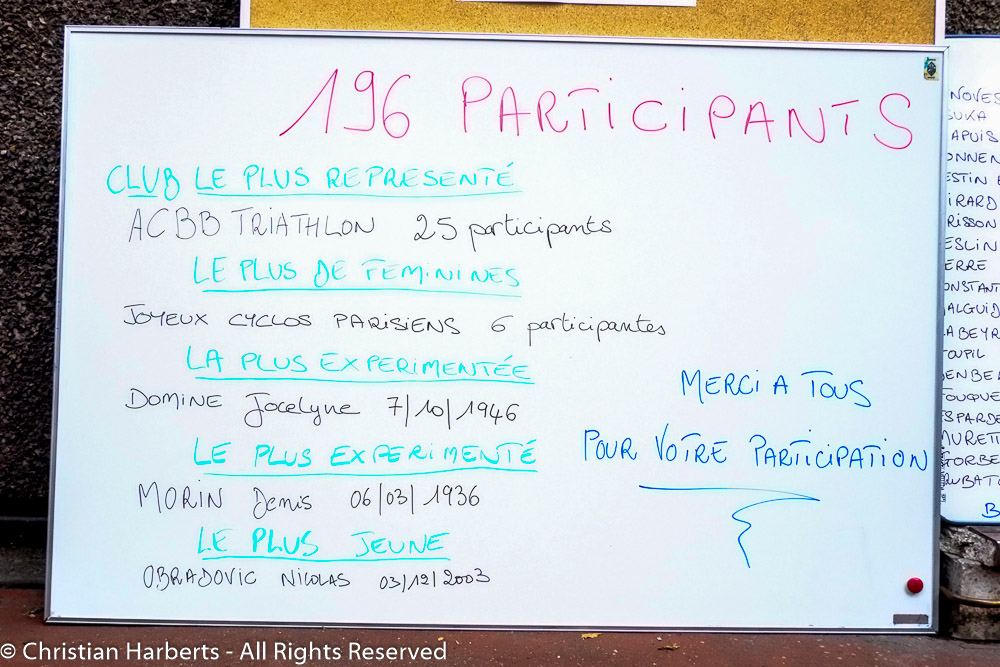 196 PARTICIPANTS
CLUB LE PLUS REPRESENTÉ
ACBB TRIATHLON 25 participants
LE PLUS DE FEMININES
JOYEUX CYCLOS PARISIENS 6 participantes
LA PLUS EXPERIMENTÉE
DOMINE Jocelyne 7/10/1946
LE PLUS EXPERIMENTÉ
MORIN Denis 06/03/1936
LE PLUS JEUNE
OBRADOVIC NICOLAS 03/12/2003
MERCI A TOUS
POUR VOTRE PARTICIPATION
NOVES
UKA
APUIS
ONNEN
ESTIN
IRARD
RISSON
ESLIN
ERRE
ONSTANT
ALGUID
ABEYR
OUPIL
ENBE
OUQUE
SPARDE
MURET
ORBE
RUBAT
B
© Christian Harberts - All Rights Reserved